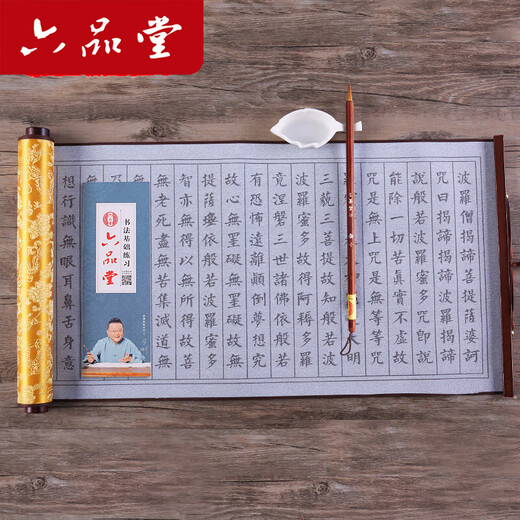 六品堂
波羅僧揭諦菩提薩婆訶
咒曰揭諦揭諦波羅揭諦
說般若波羅蜜多咒即說
能除一切苦真實不虛故
咒是無上咒是無等等
羅大明
三藐三菩提故知般若波
波羅蜜多故得阿耨多羅
竟涅槃三世諸佛依般若
有恐怖遠離顛倒夢想究
故心無罣礙無罣礙故無
提薩埵依般若波羅蜜多
智亦無得以無所得故菩
無老死盡無苦集滅道無
乃
無
想行識無眼耳鼻舌身意
书法基础练习
六品堂